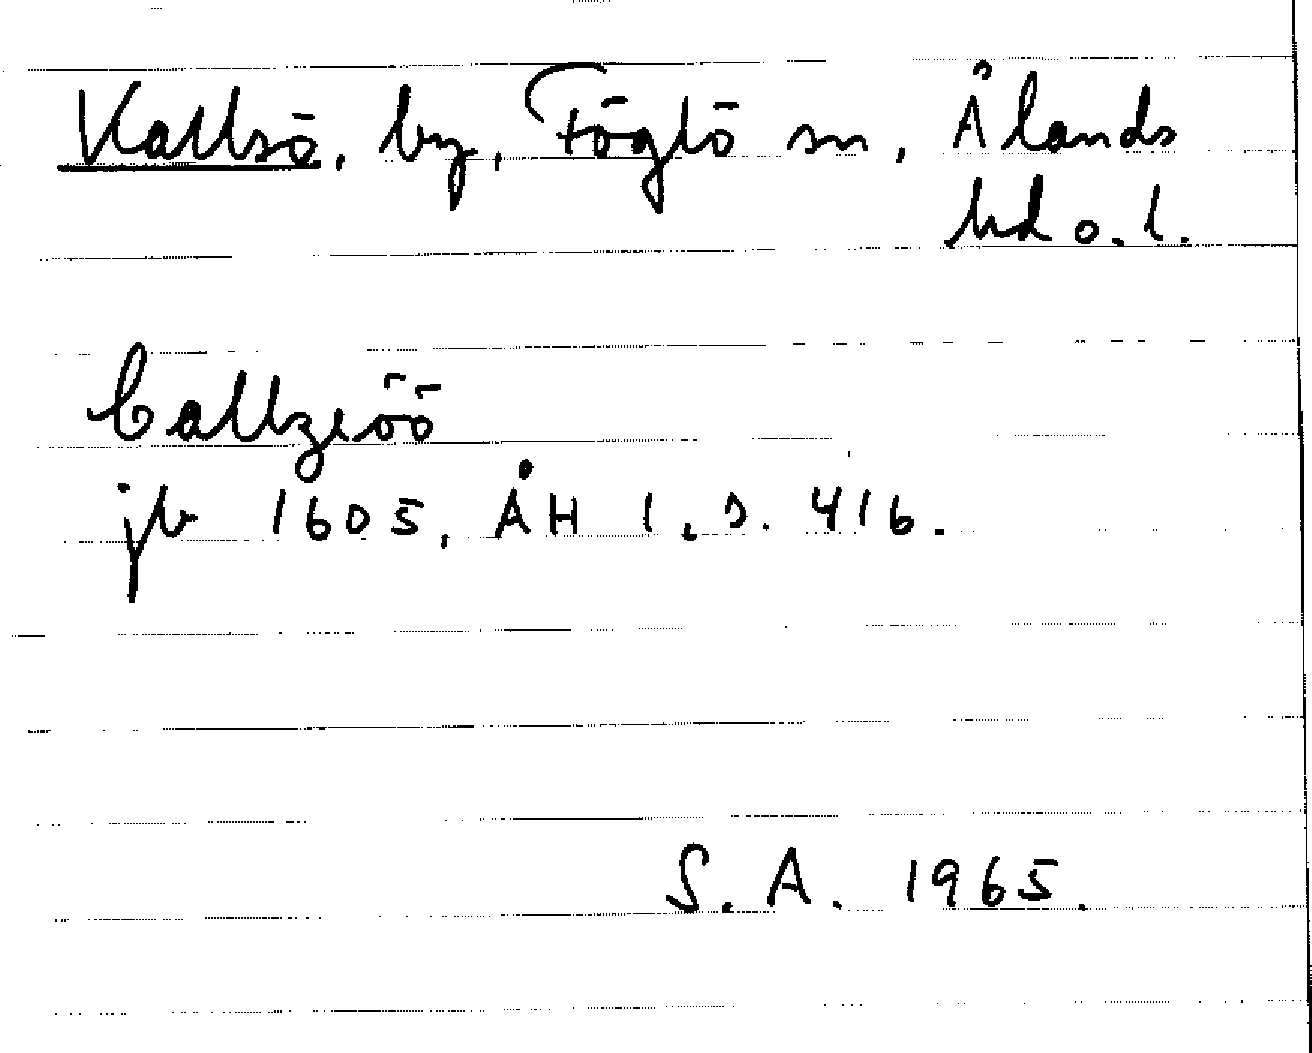 Kallsö, by, Föglö sn, Ålands
hd o. l.
Callzeöö
jb 1605, ÅH 1, s. 416.
S. A. 1965.